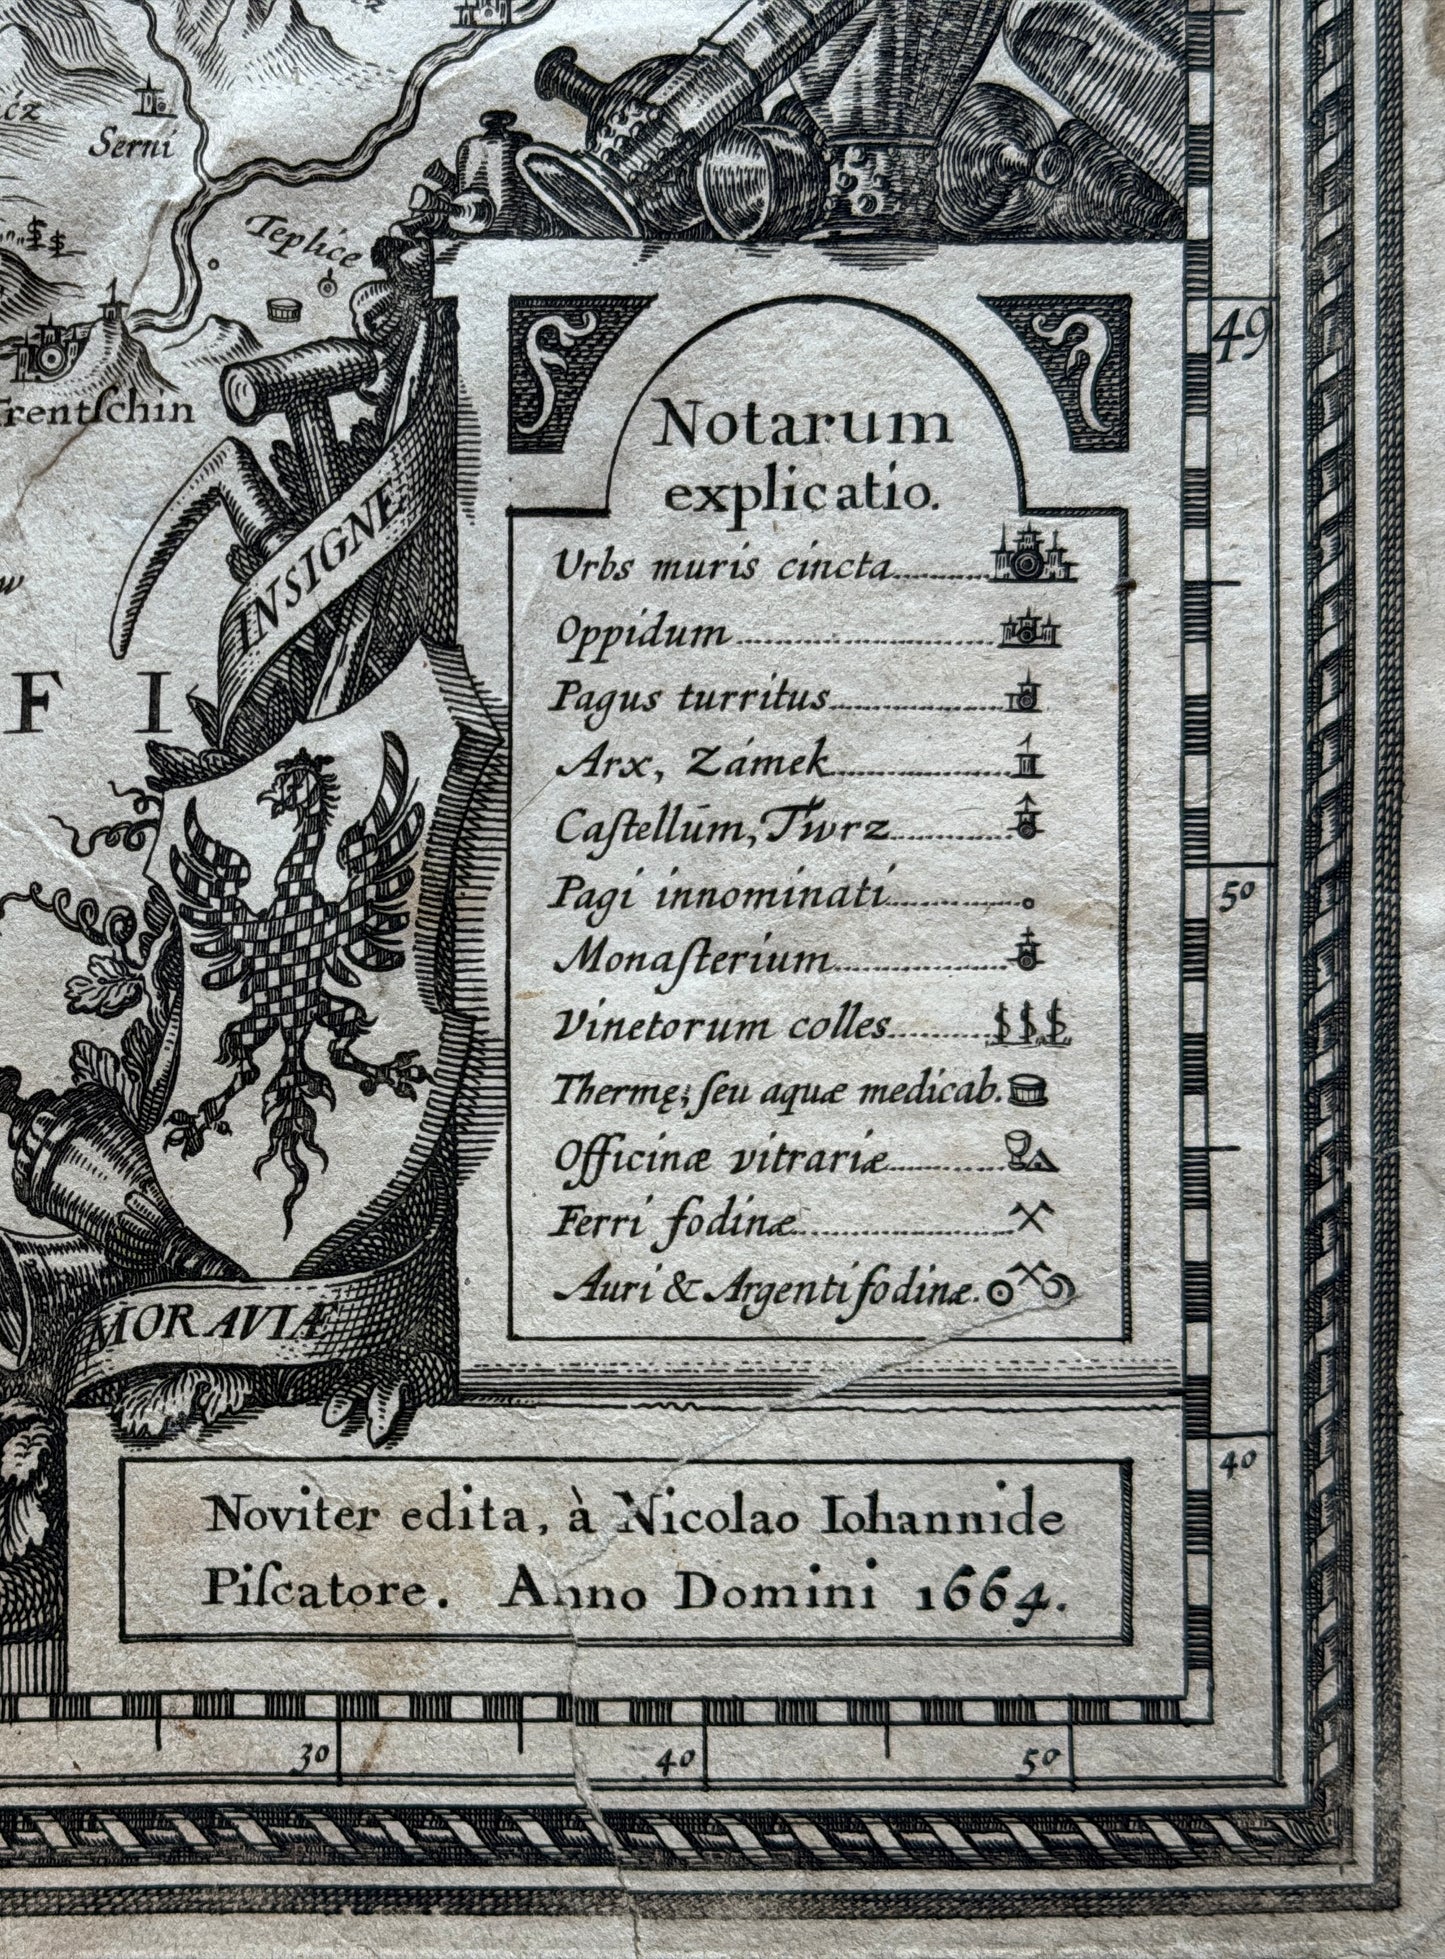 Serni
Teplice
Trentſchin
49
Notarum
explicatio.
Urbs muris cincta
Oppidum
Pagus turritus
Arx, Zámek
Caſtellūm, Twrz
Pagi innominati
Monaſterium
Vinetorum colles
Thermę; ſeu aquæ medicab.
Officinæ vitrariæ
Ferri fodinæ
Auri & Argenti fodinæ.
INSIGNE
F I
MORAVIÆ
50
40
Noviter edita, à Nicolao Iohannide
Piſcatore. Anno Domini 1664.
30 40 50